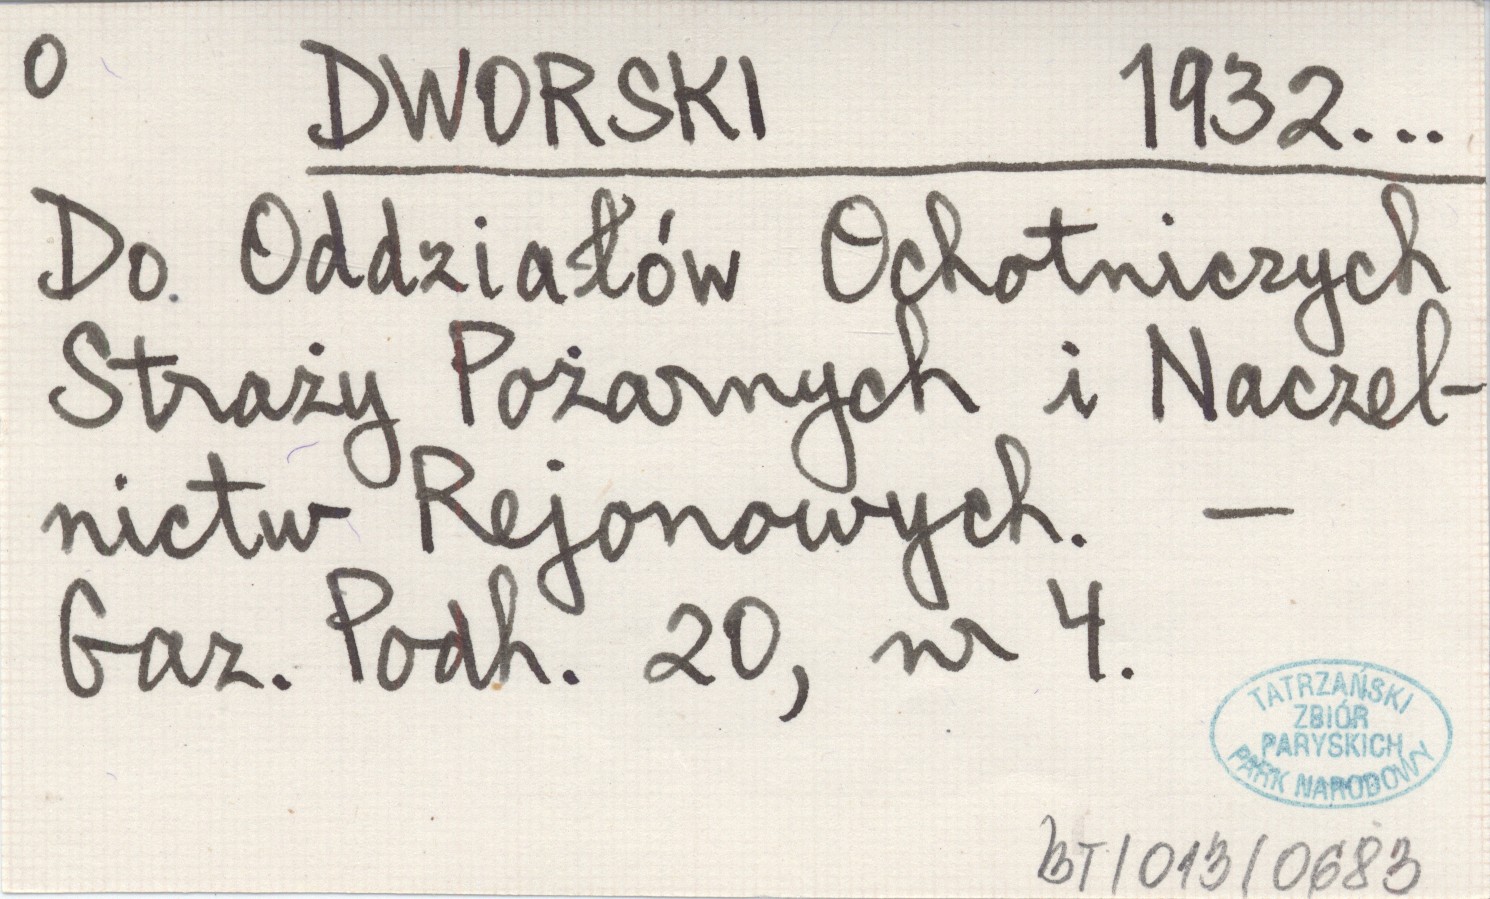 O DWORSKI 1932...
Do Oddziałów Ochotniczych
Straży Pożarnych i Naczel-
nictw Rejonowych. —
Gaz. Podh. 20, nr 4.
TATRZAŃSKI
ZBIÓR
PARYSKICH
PARK NARODOWY
BT/013/0683